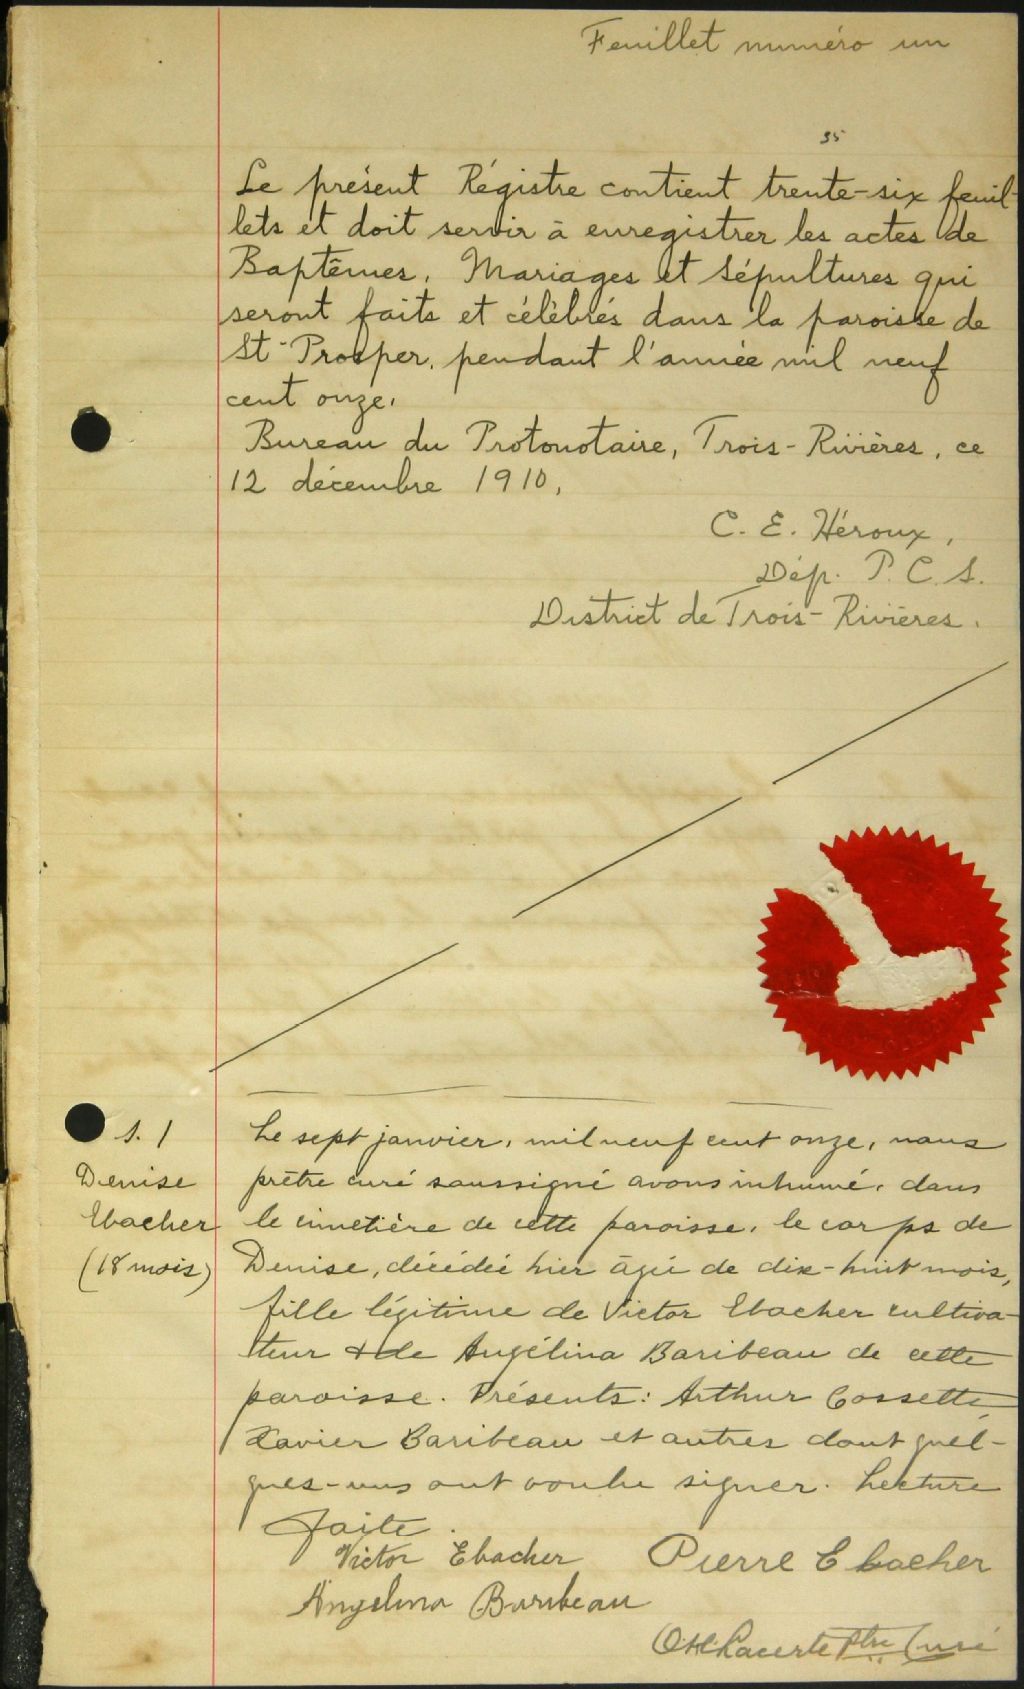 Feuillet numéro un
35
Le présent Régistre contient trente-six feuil-
lets et doit servir à enregistrer les actes de
Baptêmes, Mariages et Sépultures qui
seront faits et célèbrés dans la paroisse de
St-Prosper, pendant l'année mil neuf
cent onze.
Bureau du Protonotaire, Trois-Rivières, ce
12 décembre 1910,
C. E. Héroux,
Dép. P. C. S.
District de Trois-Rivières.
S. 1
Denise
Ebacher
(18 mois)
Le sept janvier, mil neuf cent onze, nous
prêtre curé soussigné avons inhumé, dans
le cimetière de cette paroisse, le corps de
Denise, décédée hier âgée de dix-huit mois,
fille légitime de Victor Ebacher cultiva-
teur & de Angélina Baribeau de cette
paroisse. Présents: Arthur Cossette,
Xavier Baribeau et autres dont quel-
ques-uns ont voulu signer. Lecture
faite.
Victor Ebacher Pierre Ebacher
Angelina Baribeau
O. H. Lacerte Ptre Curé